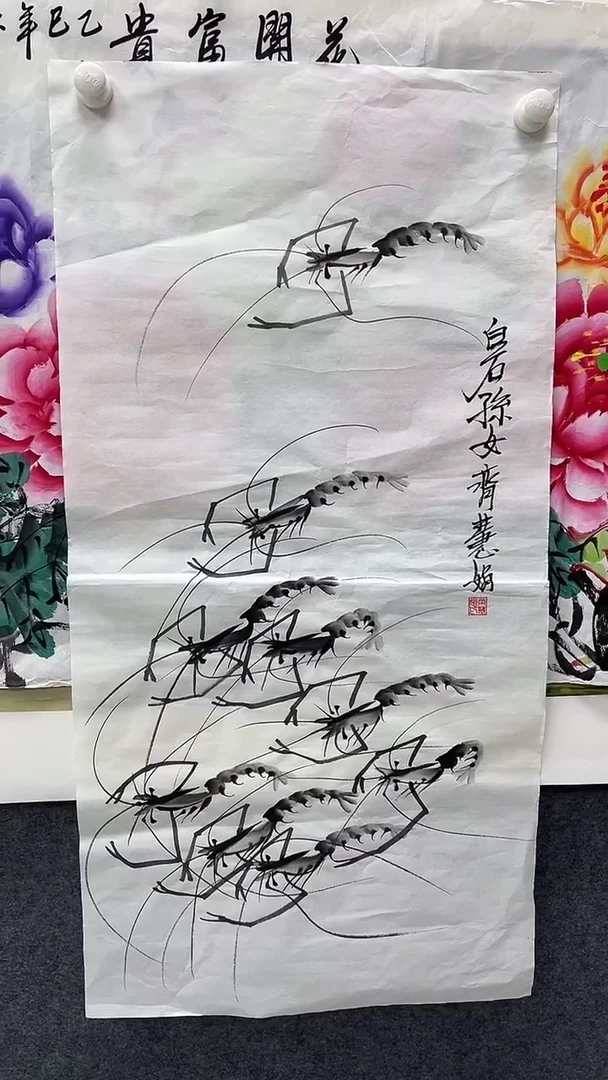 花開富貴 乙巳年
白石孫女齊慧娟